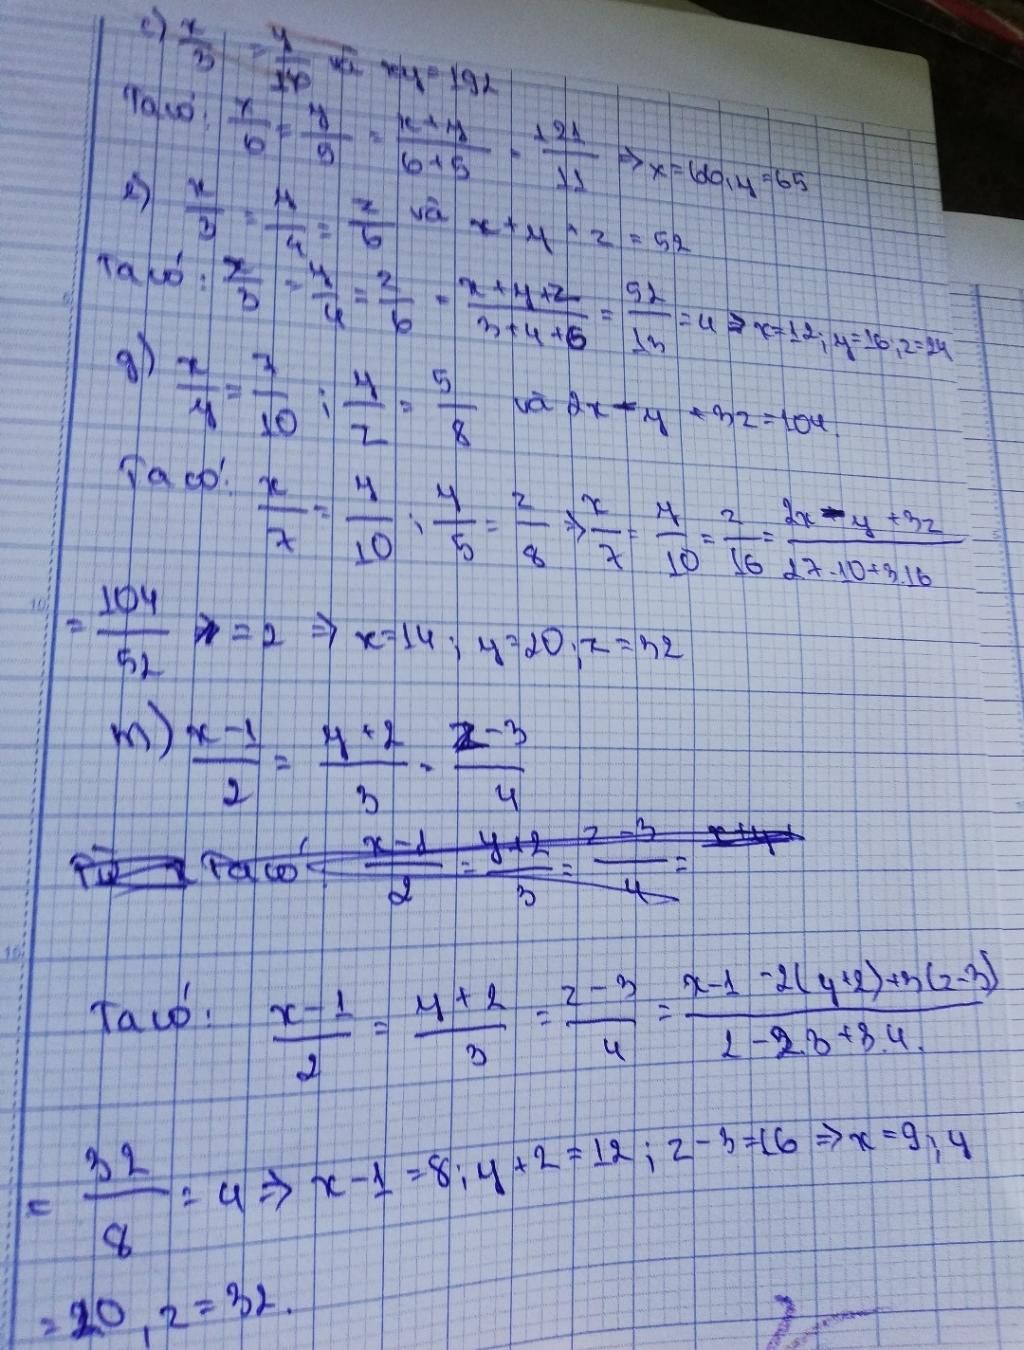 c) x/3 = y/16 và xy = 192
Ta có: x/6 = y/5 = (x+y)/(6+5) = 121/11 => x=66, y=65
e) x/3 = y/4 = z/6 và x+y+z = 52
Ta có: x/3 = y/4 = z/6 = (x+y+z)/(3+4+6) = 52/13 = 4 => x=12; y=16, z=24
g) x/y = 7/10 ; y/z = 5/8 và 2x-y+3z=104.
Ta có: x/7 = y/10 ; y/5 = z/8 => x/7 = y/10 = z/16 = (2x-y+3z)/(2.7-10+3.16)
= 104/52 = 2 => x=14; y=20; z=32
m) (x-1)/2 = (y+2)/3 = (z-3)/4
Ta có (x-1)/2 = (y+2)/3 = (z-3)/4 =
Ta có: (x-1)/2 = (y+2)/3 = (z-3)/4 = (x-1-2(y+2)+3(z-3))/(2-2.3+3.4.)
= 32/8 = 4 => x-1=8; y+2=12; z-3=16 => x=9; y
= 20, z = 32.